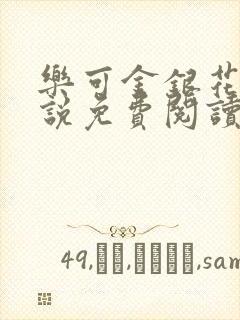 樂可金銀花
說免費閱讀
49,
,sam